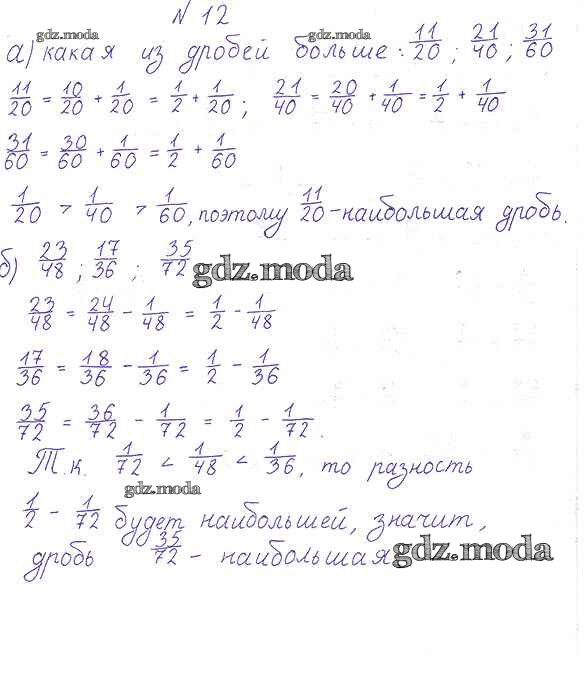 № 12
gdz.moda gdz.moda
а) какая из дробей больше: 11/20; 21/40; 31/60
11/20 = 10/20 + 1/20 = 1/2 + 1/20; 21/40 = 20/40 + 1/40 = 1/2 + 1/40
31/60 = 30/60 + 1/60 = 1/2 + 1/60
1/20 > 1/40 > 1/60, поэтому 11/20 - наибольшая дробь.
б) 23/48; 17/36; 35/72
gdz.moda
23/48 = 24/48 - 1/48 = 1/2 - 1/48
17/36 = 18/36 - 1/36 = 1/2 - 1/36
35/72 = 36/72 - 1/72 = 1/2 - 1/72.
Т.к. 1/72 < 1/48 < 1/36, то разность
gdz.moda
1/2 - 1/72 будет наибольшей, значит,
дробь 35/72 - наибольшая
gdz.moda